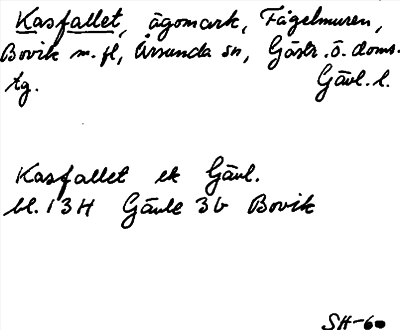 Kasfallet, ägomark, Fågelmuren,
Bovik m.fl, Årsunda sn, Gästr.ö.doms.
tg. Gävl.l.
Kasfallet ek Gävl.
bl. 13H Gävle 3b Bovik
SH-60